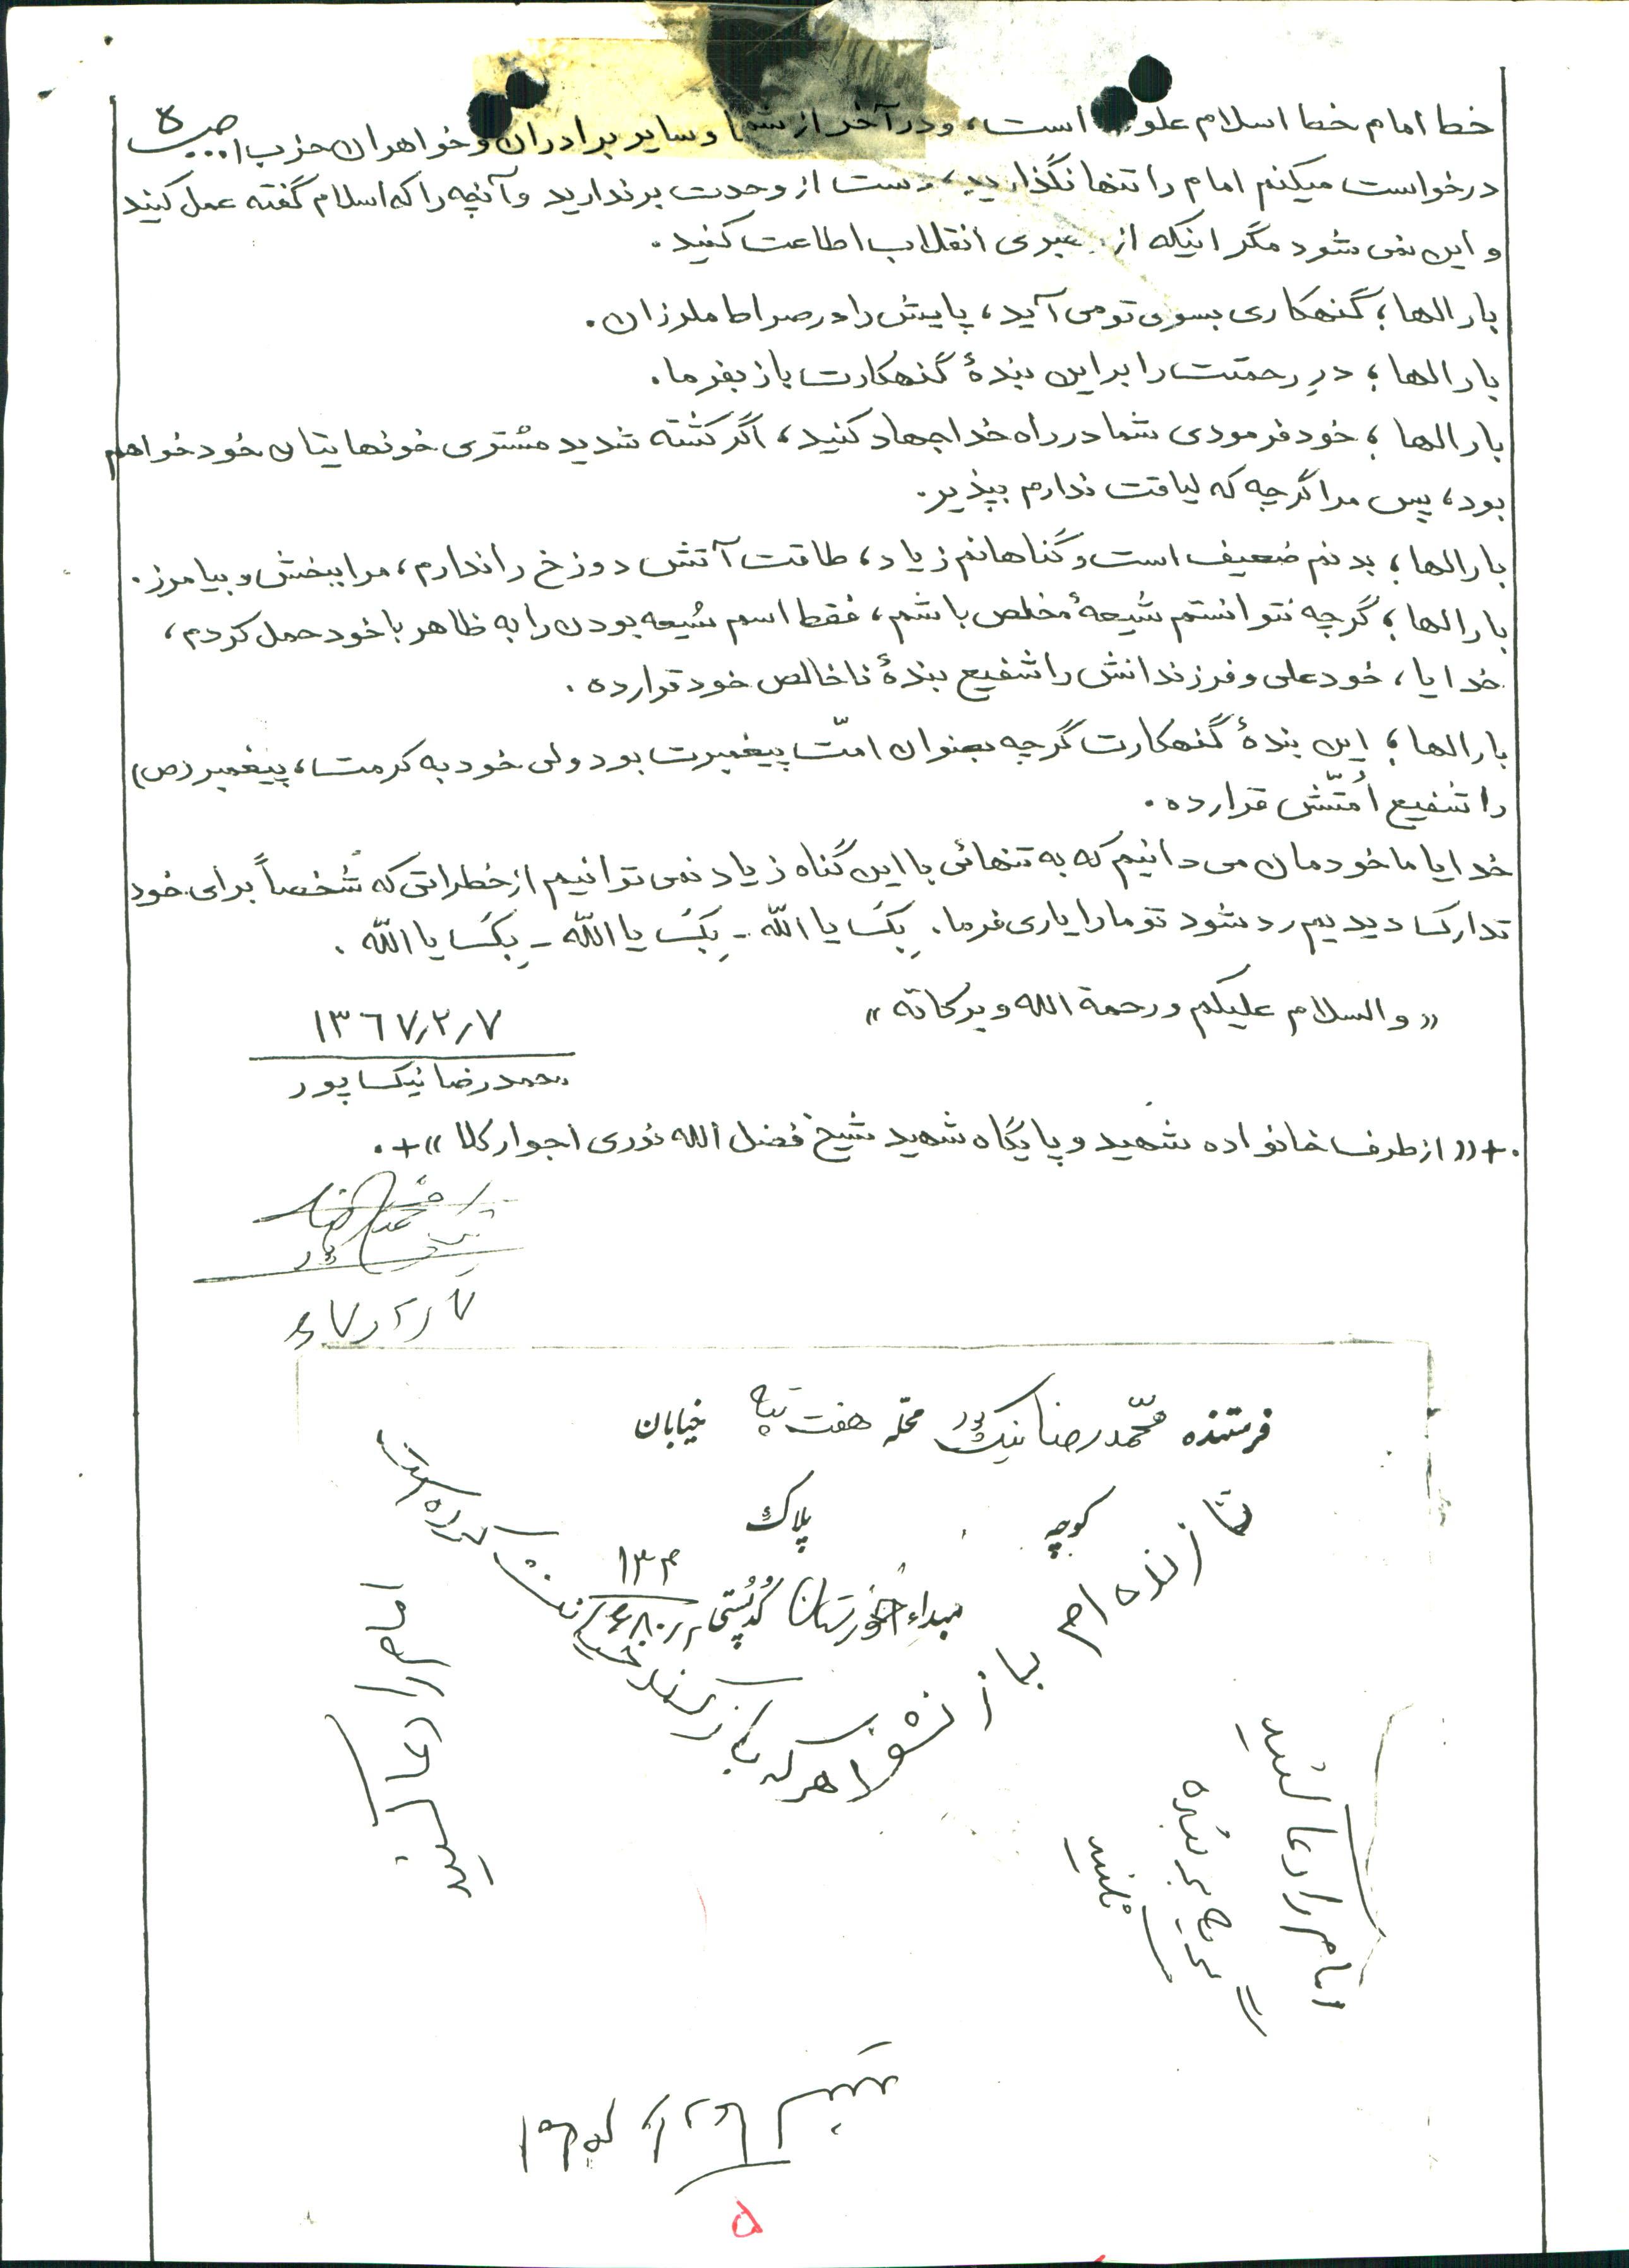 ص ۵
خط امام خط اسلام علو است، و در آخر از شما و سایر برادران و خواهران حزب ا...
درخواست میکنم امام را تنها نگذارید، دست از وحدت برندارید و آنچه را که اسلام گفته عمل کنید
و این نمی شود مگر اینکه از رهبری انقلاب اطاعت کنید.
بارالها؛ گنهکاری بسوی تو می آید، پایش را در صراط ملرزان.
بارالها؛ درِ رحمتت را بر این بندهٔ گنهکارت باز بفرما.
بارالها؛ خود فرمودی شما در راه خدا جهاد کنید، اگر کشته شدید مشتری خونهایتان خود خواهم
بود، پس مرا گرچه که لیاقت ندارم بپذیر.
بارالها؛ بدنم ضعیف است و گناهانم زیاد، طاقت آتش دوزخ را ندارم، مرا ببخش و بیامرز.
بارالها؛ گرچه نتوانستم شیعهٔ مخلص باشم، فقط اسم شیعه بودن را به ظاهر با خود حمل کردم،
خدایا، خود علی و فرزندانش را شفیع بندهٔ ناخالص خود قرار ده.
بارالها؛ این بندهٔ گنهکارت گرچه بعنوان امّت پیغمبرت بود ولی خود به کرمت، پیغمبر (ص)
را شفیع اُمتّش قرار ده.
خدایا ما خودمان می دانیم که به تنهائی با این گناه زیاد نمی توانیم از خطراتی که شخصاً برای خود
تدارک دیدیم رد شود تو ما را یاری فرما. بِکَ یا اللّه - بِکَ یا اللّه - بِکَ یا اللّه.
«والسلام علیکم و رحمة الله و برکاته»
۱۳٦۷/۲/۷
محمدرضا نیک پور
+«از طرف خانواده شهید و پایگاه شهید شیخ فضل الله نوری اجوارکلا»+.
محمدرضا
نیک پور
۶۷/۲/۷
فرستنده محمّدرضا نیک پور محله هفت تپه خیابان
کوچه پلاک
مبداء خوزستان کُدپُستی
تا زنده ام
امام را دعا کنید
امام را دعا کنید
۵